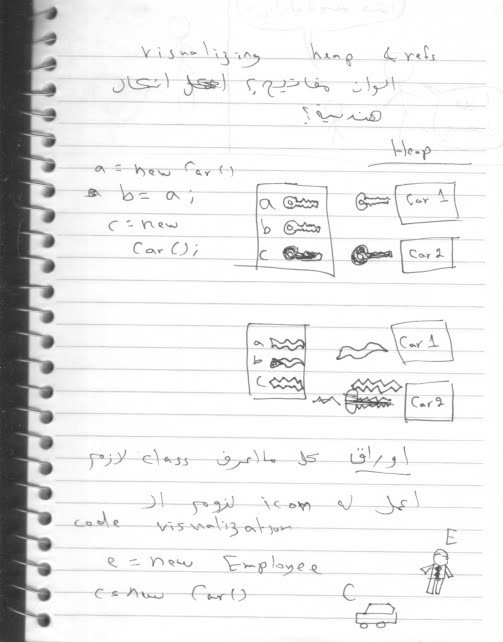 visualizing heap & refs
الوان مفاتيح؟ اشكال
هندسية؟
Heap
a = new Car()
b = a;
c = new
Car();
a
b
c
Car 1
Car 2
a
b
c
Car 1
Car 2
اوراق كل ما اعرف class لازم
اعمل له icon لزوم الـ
code visualization
E
e = new Employee
c = new Car()
C